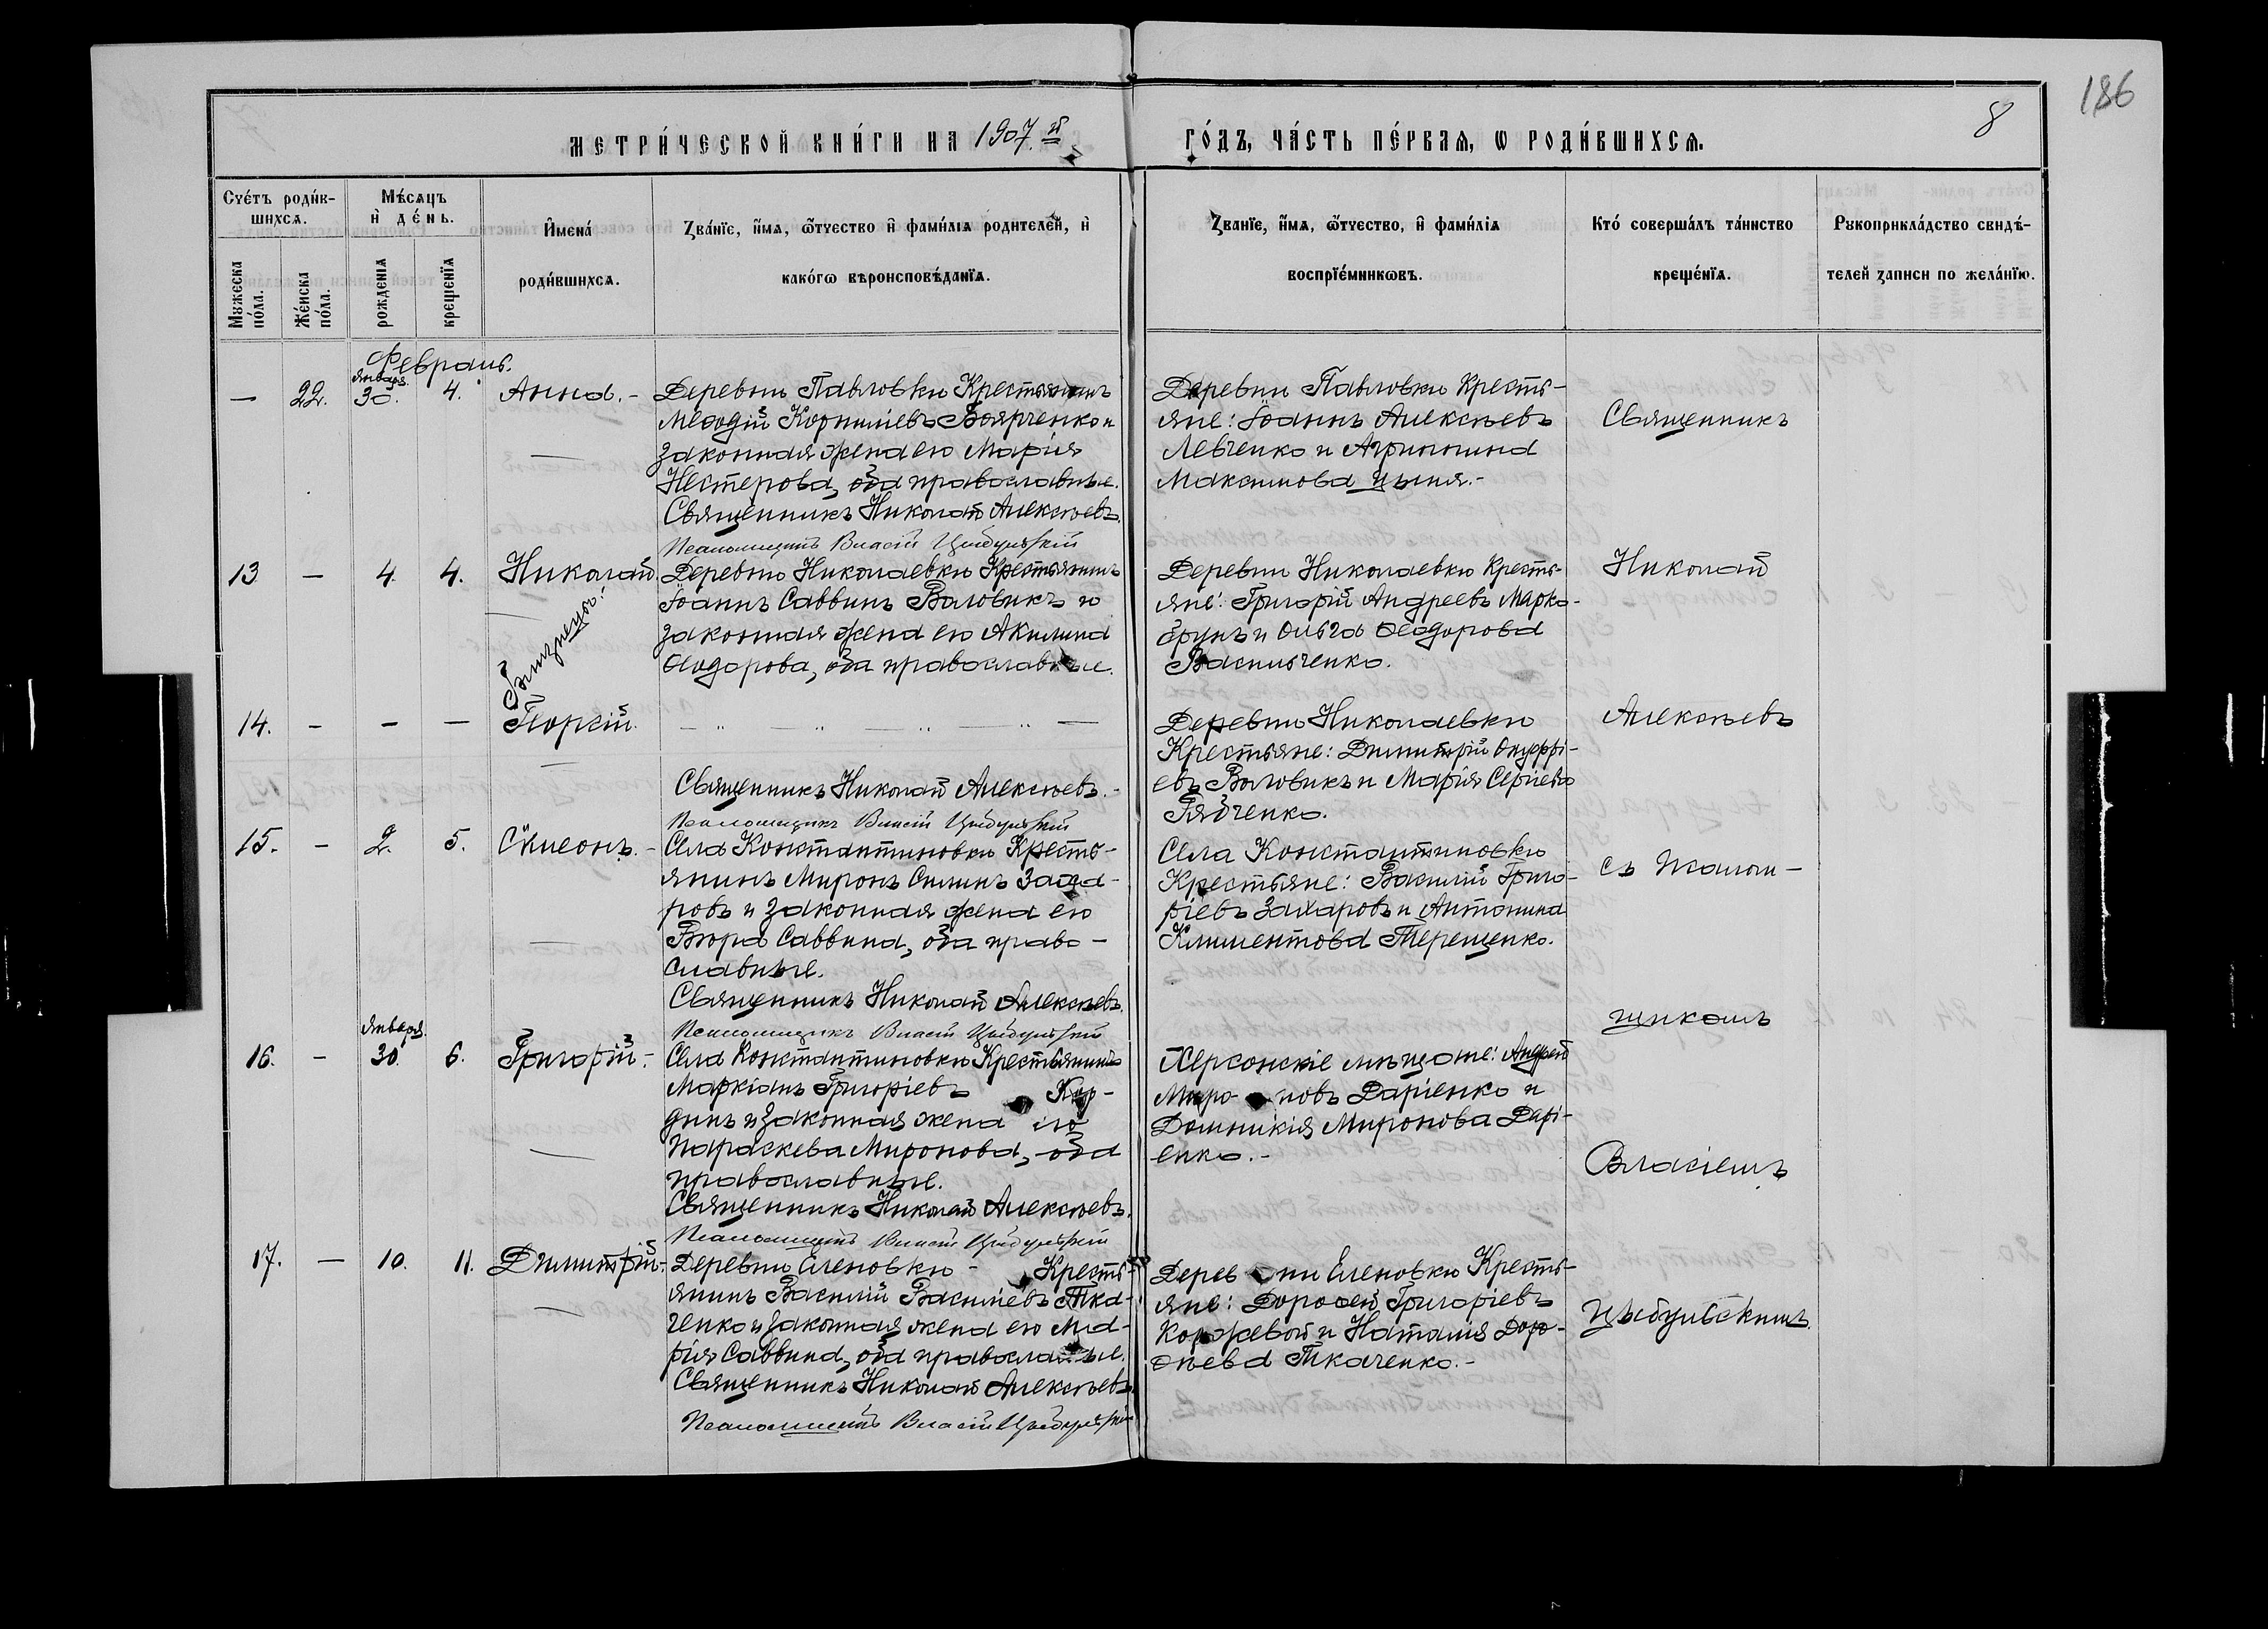 186
8
МЕТРИ́ЧЕСКОЙ КНИ́ГИ НА 1907 й
ГО́ДЪ, ЧА́СТЬ ПЕ́РВАѦ, Ѡ РОДИ́ВШИХСѦ.
Счетъ роди́в-
шихсѧ.
Мѣ́сѧцъ
и҆ де́нь.
И҆мена́
роди́вшихсѧ.
Зва́нїе, и҆́мѧ, ѻ҆́тчество и҆ фами́лїѧ родителе́й, и҆
како́гѡ вѣроисповѣ́данїѧ.
Зва́нїе, и҆́мѧ, ѻ҆́тчество, и҆ фами́лїѧ
воспрїе́мникѡвъ.
Кто́ соверша́лъ та́инство
креще́нїѧ.
Рукоприкла́дство свидѣ́-
телей записи по жела́нїю.
Мужеска
по́ла.
Же́нска
по́ла.
рожденїѧ
крещенїѧ
Февраль.
Января.
— 22. 30. 4. Анна. -
Деревни Павловки Крестьянинъ
Меѳодій Корниліевъ Боярченко и
законная жена его Марія
Нестерова, оба православные.
Священникъ Николай Алексѣевъ.
Псаломщикъ Власій Цыбульскій
Деревни Павловки Кресть-
яне: Іоаннъ Алексѣевъ
Левченко и Агриппина
Максимова
Священникъ
13 — 4. 4. Николай.
Близнецы.
Деревни Николаевки Крестьянинъ
Іоаннъ Саввинъ Воловикъ и
законная жена его Акилина
Ѳеодорова, оба православные.
Деревни Николаевки Кресть-
яне: Григорій Андреевъ Марко-
брунъ и Ольга Ѳеодорова
Васильченко.
Николай
14. - - — Георгій.
— " — " — " — " —
Священникъ Николай Алексѣевъ. -
Псаломщикъ Власій Цыбульскій
Деревни Николаевки
Крестьяне: Димитрій Онуфрі-
евъ Воловикъ и Марія Сергіева
Рябченко.
Алексѣевъ
15. - 2. 5. Сѵмеонъ. -
Села Константиновки Кресть-
янинъ Миронъ Силинъ Заха-
ровъ и законная жена его
Вѣра Саввина, оба право-
славные.
Священникъ Николай Алексѣевъ.
Псаломщикъ Власій Цыбульскій
Села Константиновки
Крестьяне: Василій Григо-
ріевъ Захаровъ и Антонина
Климентова Терещенко.
съ Псалом-
щикомъ
Января.
16. - 30. 6. Григорій. -
Села Константиновки Крестьянинъ
Маркіанъ Григоріевъ Кар-
динъ и законная жена его
Параскева Миронова, оба
православные.
Священникъ Николай Алексѣевъ.
Псаломщикъ Власій Цыбульскій
Херсонскіе мѣщане: Андрей
Миро-новъ Даріенко и
Домникія Миронова Дарі-
енко. -
Власіемъ
17. — 10. 11. Димитрій. -
Деревни Еленовки - Кресть-
янинъ Василій Васильевъ Тка-
ченко и законная жена его Ма-
рія Саввина, оба православные.
Священникъ Николай Алексѣевъ.
Псаломщикъ Власій Цыбульскій
Дерев ни Еленовки Кресть-
яне: Дороѳей Григоріевъ
Коржевой и Наталія Доро-
ѳеева Ткаченко. -
Цыбульскимъ.